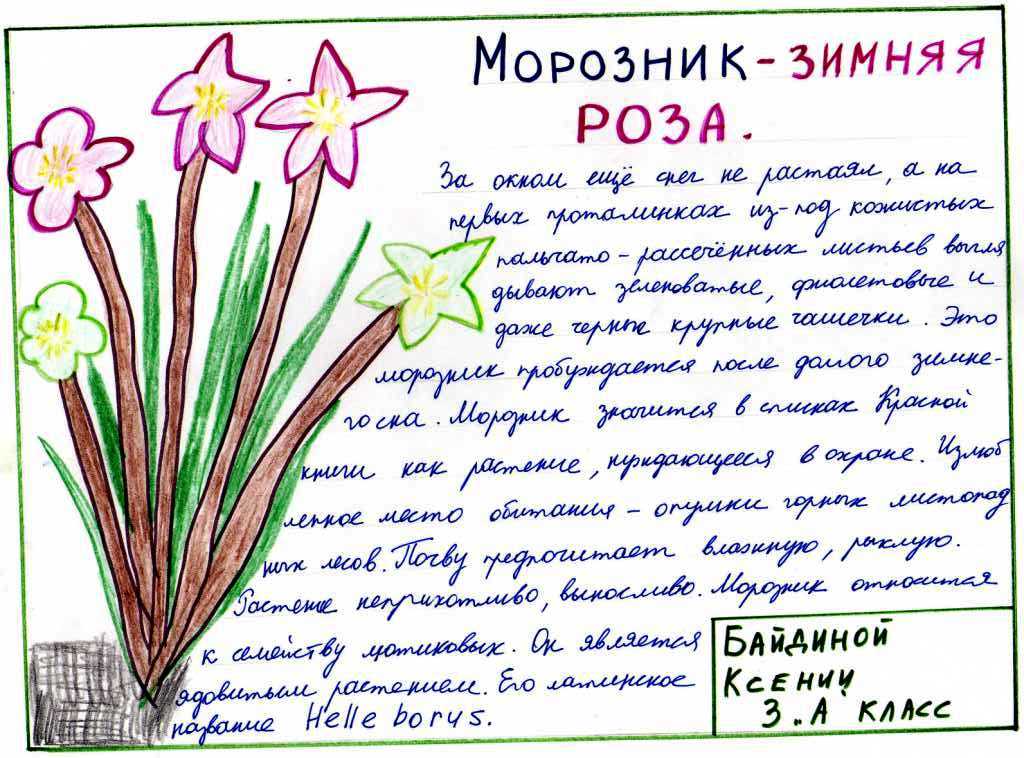 Морозник - зимняя
роза.
За окном ещё снег не растаял, а на
первых проталинках из-под кожистых
пальчато-рассечённых листьев выгля
дывают зеленоватые, фиолетовые и
даже черные крупные чашечки. Это
морозник пробуждается после долгого зимне-
го сна. Морозник значится в списках Красной
книги как растение, нуждающееся в охране. Излюб
ленное место обитания - опушки горных листопад
ных лесов. Почву предпочитает влажную, рыхлую.
Растение неприхотливо, выносливо. Морозник относится
к семейству лютиковых. Он является
ядовитым растением. Его латинское
название Helleborys.
Байдиной
Ксении
3 "А класс